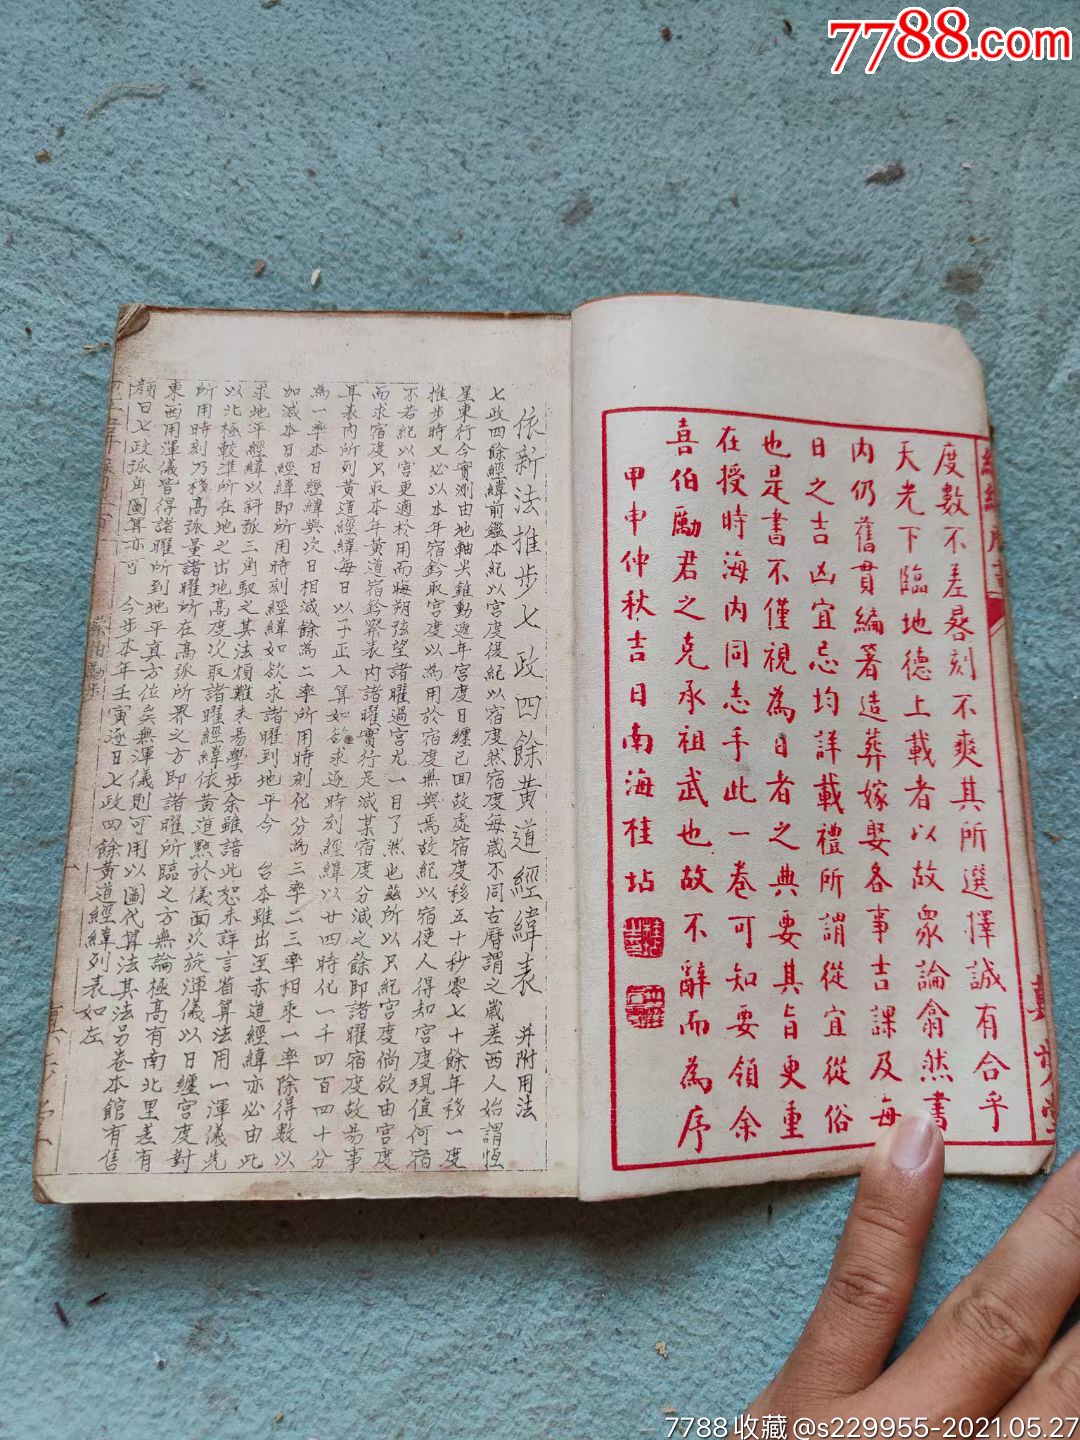 7788.com
度數不差晷刻不爽其所選擇誠有合乎
天光下臨地德上載者以故衆論翕然書
内仍舊貫編著造葬嫁娶各事吉課及每
日之吉凶宜忌均詳載禮所謂從宜從俗
也是書不僅視為日者之典要其旨更重
在授時海内同志手此一卷可知要領余
喜伯勵君之克承祖武也故不辭而為序
甲申仲秋吉日南海桂坫
依新法推步七政四餘黃道經緯表 并附用法
七政四餘經緯前鑑本紀以宮度復紀以宿度然宿度每歲不同古曆謂之歲差西人始謂恆
星東行今實測由地軸尖錐動遞年宮度日纏已回故處宿度移五十秒零七十餘年移一度
推步時又必以本年宿鈐取宮度以為用於宿度無與焉故紀以宿使人得知宮度現值何宿
不若紀以宮更適於用而晦朔弦望諸曜過宮尤一目了然也茲所以只紀宮度倘欲由宮度
而求宿度只取本年黃道宿鈐察表内諸曜實行足減某宿度分減之餘即諸曜宿度故易事
耳表内所列黃道經緯每日以子正入算如欲求逐時刻經緯以廿四時化一千四百四十分
為一率本日經緯與次日相減餘為二率所用時刻化分為三率二三率相乘一率除得數以
加減本日經緯即所用時刻經緯如欲求諸曜到地平令 台本雖出至赤道經緯亦必由此
求地平經緯以斜弧三角馭之其法煩難未易學步余雖諳此恕未詳言省算法用一渾儀先
以北極較准所在地之出地高度次取諸曜經緯依黃道點於儀面次旋渾儀以日纏宮度對
所用時刻乃棧高弧量諸曜所在高弧所界之方即諸曜所臨之方無論極高有南北里差有
東西用渾儀皆得諸曜所到地平真方位矣無渾儀則可用以圖代算法其法另卷本館有售
顏曰七政弧角圖算亦可 今步本年壬寅逐日七政四餘黃道經緯列表如左
7788收藏@s229955-2021.05.27